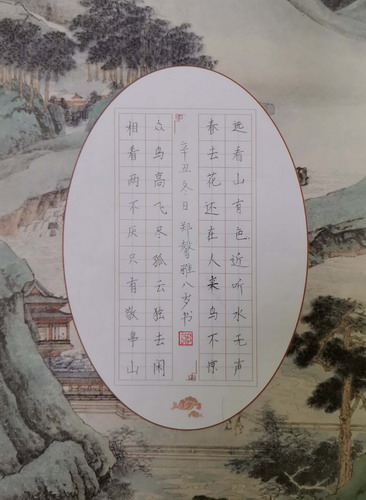 远看山有色近听水无声
春去花还在人来鸟不惊
辛丑冬日郑馨雅八岁书
众鸟高飞尽孤云独去闲
相看两不厌只有敬亭山